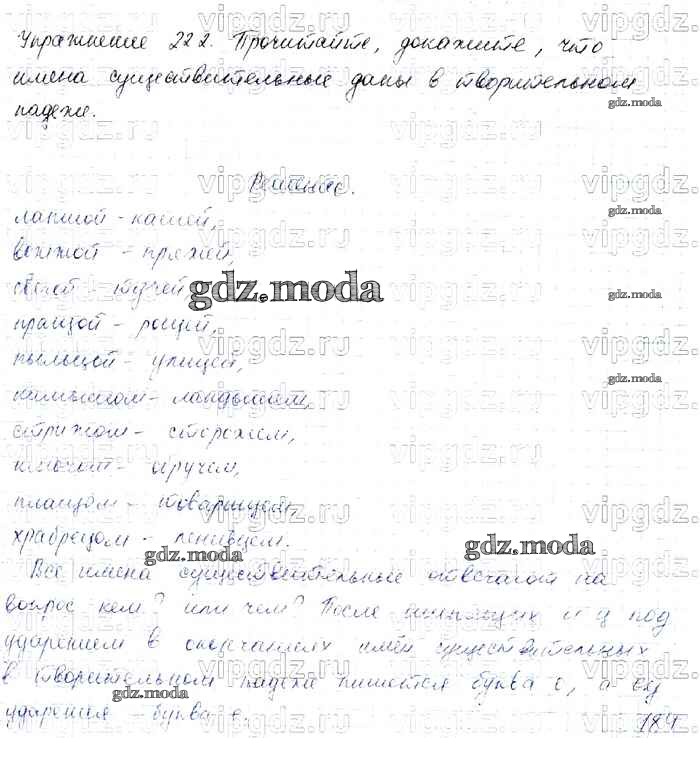 Упражнение 222. Прочитайте, докажите, что
имена существительные даны в творительном
падеже.
Решение.
лапшой - кашей,
вожжой - пряжей,
свечой - тучей
пращой - рощей,
пыльцой - улицей,
камышом - ландышем,
стрижом - сторожем,
ключом - обручем,
плащом - товарищем,
храбрецом - ленивцем.
Все имена существительные отвечают на
вопрос кем? или чем? После шипящих и ц под
ударением в окончаниях имён существительных
в творительном падеже пишется буква о, а без
ударения - буква е.
184
vipgdz.ru
gdz.moda